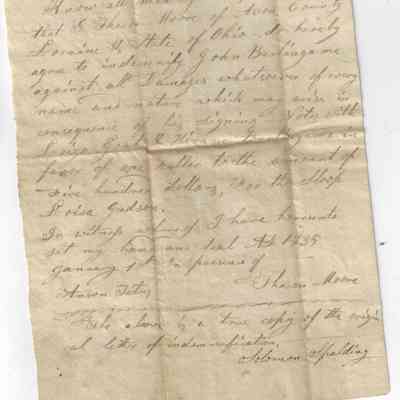 Know all men
that I Tharon Moore of Avon County
Loraine & State of Ohio do hereby
agree to indemnify John Burlingame
against all Damages whatsoever of every
name and nature which may arise in
consequence of his signing Notes with
in
favor of to the amount of
five hundred dollars, for the Sloop
Louisa
In witness whereof I have hereunto
set my hand and seal AD 1835
January 1st In presence of
Tharon Moore
Aaron
The above is a true copy of the origin
al letter of indemnification,
Solomon Spalding